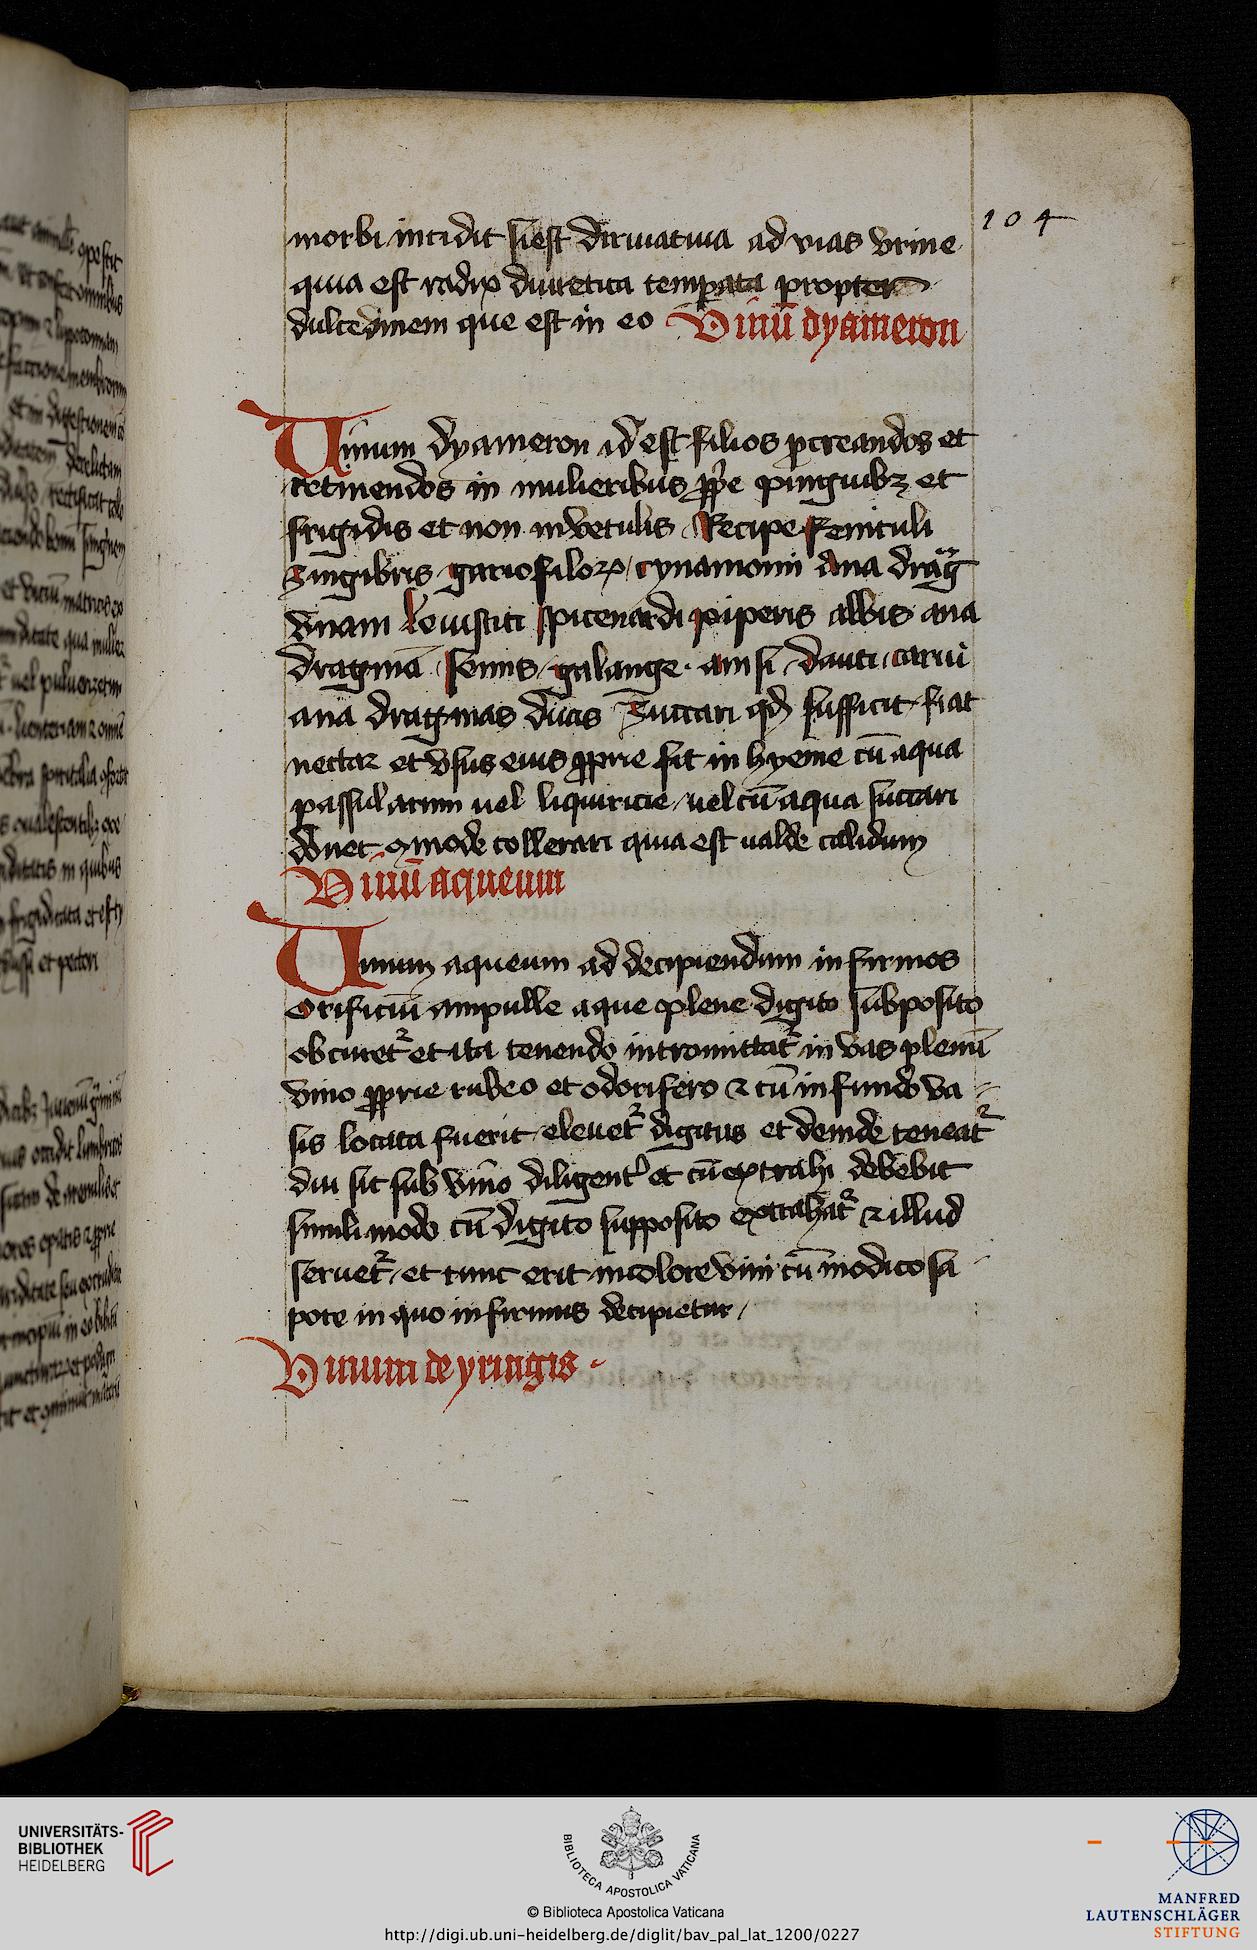 104
morbi incidit si est diriuatiua ad vias vrine
quia est radix diuretica temperata propter
dulcedinem que est in eo Vinū dyameron
Uinum dyameron id est filios pcreandos et
retinendos in mulieribus ppe pinguibz et
frigidis et non in vetulis Recipe feniculi
zingibris gariofiloꝝ cynamomi ana drag̃
vnam leuistici spicenardi piperis albis ana
dragmā semis galange anisi dauci carui
ana dragmas duas zuccari qd sufficit fiat
nectar et vsus eius pprie sit in hyeme cū aqua
passularum uel liquiricie uel cū aqua succari
donet ꝯmode tollerari quia est ualde calidum
Vinū aqueum
Uinum aqueum ad decipiendum infirmos
orificiū ampulle aque plene digito subposito
obturet᷑ et ita tenendo intromittat᷑ in vas plenū
vino pprie rubeo et odorifero ⁊ cū in fundo va-
sis locata fuerit eleuet᷑ digitus et deinde teneat᷑
diu sit sub vino diligent᷑ et cū extrahi debebit
simili modo cū digito supposito extrahat᷑ ⁊ illud
seruet᷑ et tunc erit in colore vini cū modico sa-
pore in quo infirmus decipietur
Vinum de yringis
UNIVERSITÄTS-
BIBLIOTHEK
HEIDELBERG
BIBLIOTECA APOSTOLICA VATICANA
© Biblioteca Apostolica Vaticana
http://digi.ub.uni-heidelberg.de/diglit/bav_pal_lat_1200/0227
MANFRED
LAUTENSCHLÄGER
STIFTUNG